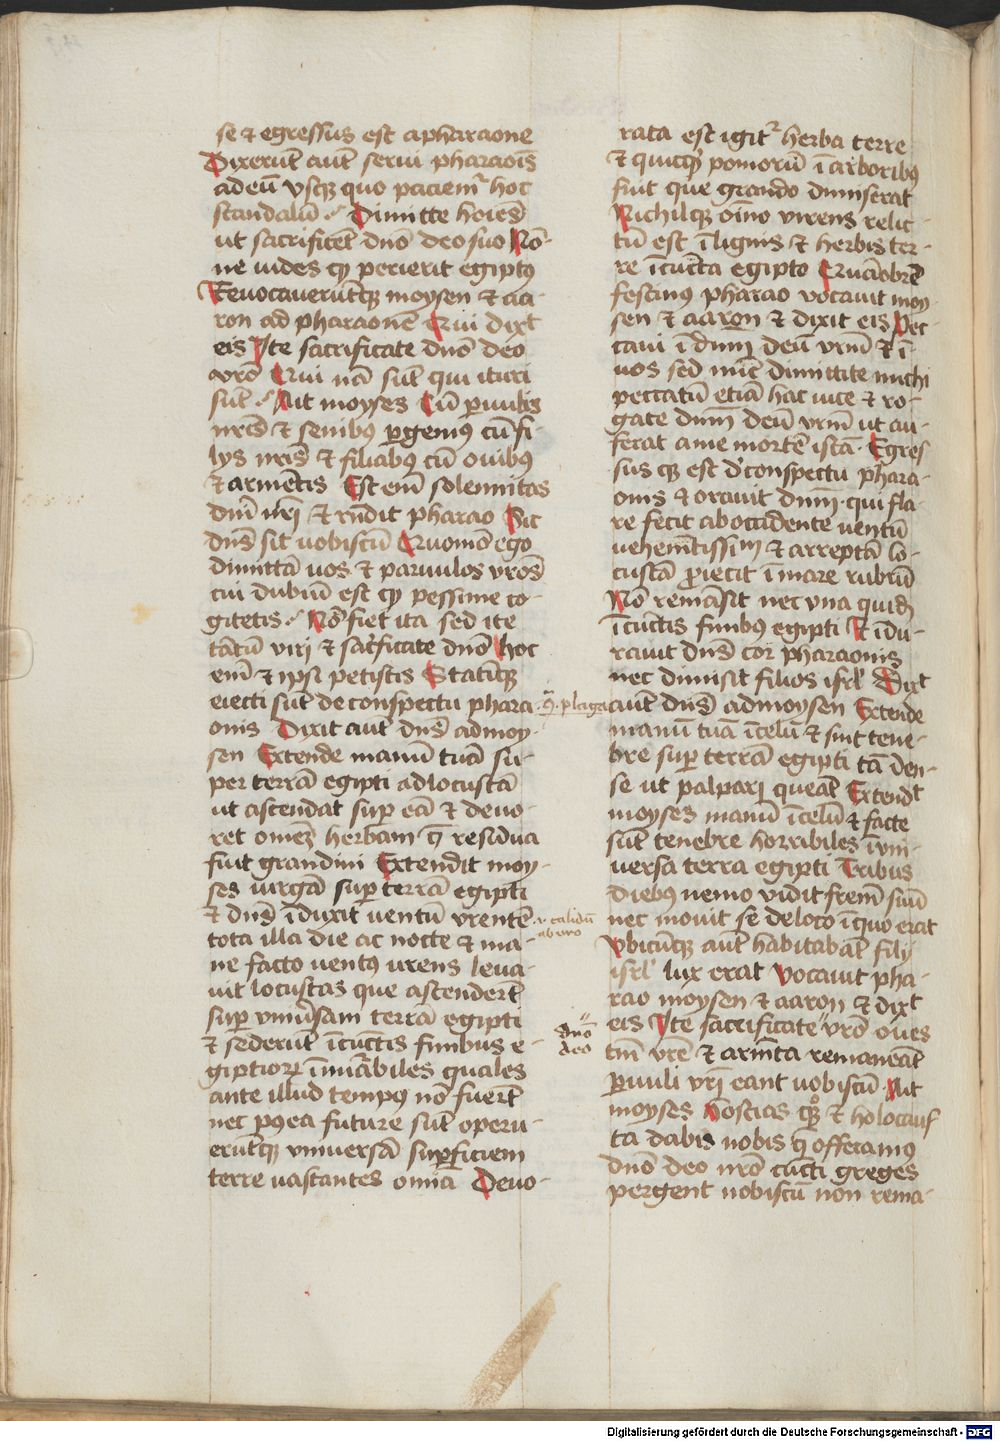 se ⁊ egressus est a pharaone
Dixerūt aūt serui pharaoīs
ad eū vsqꝫ quo paciemᷣ hoc
scandalū Dimitte hoīes
ut sacrificēt dn̄o deo suo Nō-
ne uides qꝫ perierit egiptꝰ
Reuocauerūtqꝫ moysen ⁊ aa-
ron ad pharaonē Qui dixt
eis Ite sacrificate dn̄o deo
vrō Qui nā sūt qui ituri
sūt Ait moyses Cū ꝑuulis
nrīs ⁊ senibꝰ ꝑgemꝰ cū fi-
lys nrīs ⁊ filiabꝰ cū ouibus
⁊ armētis Est em̄ solennitas
dn̄i nrī ⁊ rn̄dit pharao Sic
dn̄s sit uobiscū Quomō ego
dimittā uos ⁊ paruulos vrōs
cui dubiū est qꝫ pessime co-
gitetis Nō fiet ita sed ite
tātū viri ⁊ sac̓ficate dn̄o hoc
em̄ ⁊ ipsi petistis Statīqꝫ
eiecti sūt de conspectu phara-
onis Dixit aūt dn̄s ad moy-
sen Extende manū tuā su-
per terrā egipti ad locustā
ut ascendat suꝑ eā ⁊ deuo-
ret omēꝫ herbam q̄ residua
fuit grandini Extendit moy-
ses uirgā suꝑ terrā egipti
⁊ dn̄s īduxit uentū vrentē
tota illa die ac nocte ⁊ ma-
ne facto uentꝰ urens leua-
uit locustas que ascenderūt
suꝑ vniūsam terrā egipti
⁊ sederūt ī cūctis finibus e-
giptioꝝ īnūabiles quales
ante illud tempꝰ nō fuerūt
nec postea future sūt operu-
erūtqꝫ vniuersā suꝑficiem
terre uastantes omia Deuo-
.9. plaga
calidū
dn̄o
deo
rata est igitᷣ herba terre
⁊ quicqꝫ pomorū ī arboribꝰ
fuit que grando dimiserat
Nichilqꝫ oīno virens relic-
tū est ī lignis ⁊ herbis ter-
re ī cūcta egipto Quāobrē
festinꝰ pharao vocauit moy-
sen ⁊ aaron ⁊ dixit eis Pec-
caui ī dn̄m deū vrm̄ ⁊ ī
uos sed nūc dimittite michi
peccatū etiā hac uice ⁊ ro-
gate dn̄m deū vrm̄ ut au-
ferat a me mortē istā Egres
sus qꝫ est de cōspectu phara-
onis ⁊ orauit dn̄m qui fla-
re fecit ab occidente uentū
uehemētissimū ⁊ arreptā lo-
custā ꝓiecit ī mare rubrū
Nō remāsit nec vna quidē
ī cūctis finibꝰ egipti Et īdu-
rauit dn̄s cor pharaonis
nec dimisit filios isrl̄ Dixt
aūt dn̄s ad moysen Extende
manū tuā ī celū ⁊ sint tene-
bre suꝑ terrā egipti tā den-
se ut palpari queāt Extendt
moyses manū ī celū ⁊ facte
sūt tenebre horribiles ī vni-
uersa terra egipti Tribus
diebus nemo vidit frēm suū
nec mouit se de loco ī quo erat
Vbicūqꝫ aūt habitabāt filij
isrl̄ lux erat Vocauit pha-
rao moysen ⁊ aaron ⁊ dixt
eis Ite sacrificate vrē oues
tm̄ vrē ⁊ armēta remaneāt
ꝑuuli vrī eant uobiscū Ait
moyses hostias qꝫ ⁊ holocaus
ta dabis nobis q̄ offeramꝰ
dn̄o deo nrō cūcti greges
pergent nobiscū non rema-
Digitalisierung gefördert durch die Deutsche Forschungsgemeinschaft - DFG